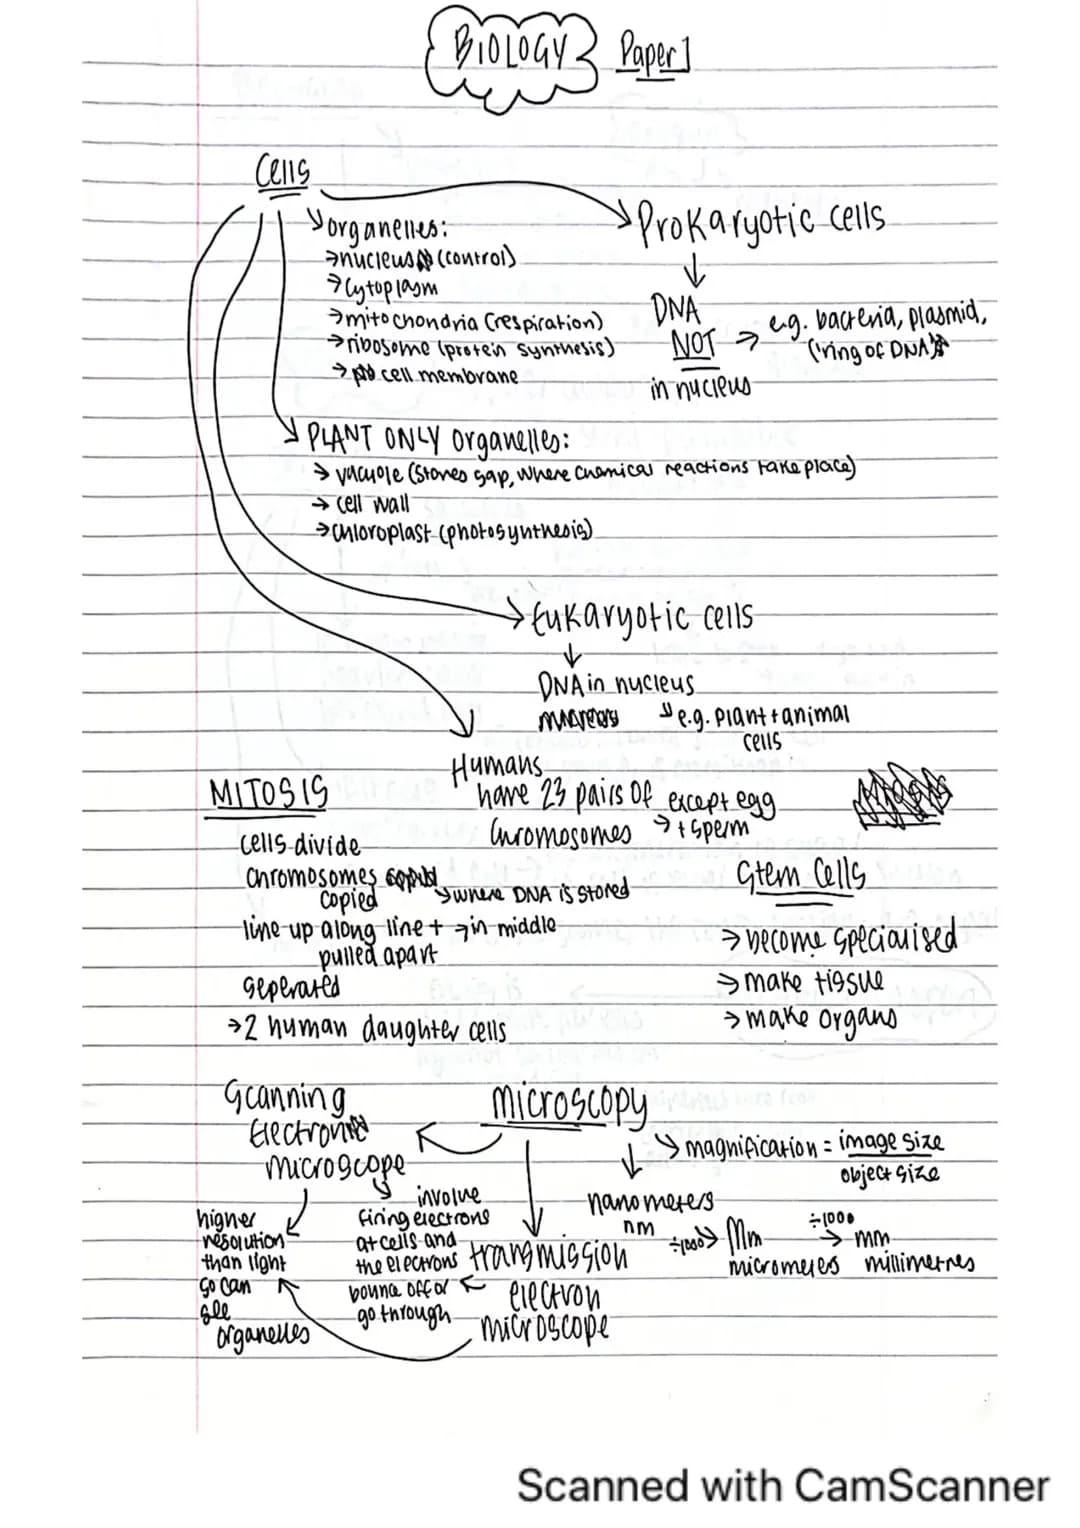 BIOLOGY Paper 1
Cells
organelles:
→nucleus (control)
→cytoplasm
→mitochondria (respiration)
→ribosome (protein synthesis)
→ cell membrane
Prokaryotic cells
DNA
NOT → e.g. bacteria, plasmid,
('ring of DNA')
in nucleus
PLANT ONLY organelles:
→ vacuole (stores sap, where chemical reactions take place)
→ cell wall
→chloroplast (photosynthesis)
Eukaryotic cells
DNA in nucleus
e.g. plant + animal
cells
Humans
have 23 pairs of except egg
chromosomes → + sperm
MITOSIS
cells divide
chromosomes
copied where DNA is stored
line up along line + →in middle
pulled apart
seperated
→2 human daughter cells
Stem Cells
→ become specialised
→ make tissue
→ make organs
microscopy
magnification = image size
object size
nanometers
nm ÷1000→ Mm ÷1000→ mm
micrometers millimetres
Scanning
Electron
microscope
involve
firing electrons
at cells and
the electrons
bounce off or
go through
higher
resolution
than light
so can
see
organelles
transmission
electron
microscope
Scanned with CamScanner